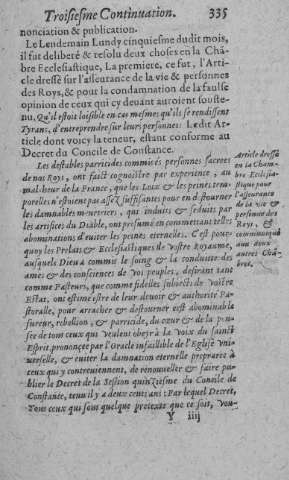 Troisiesme Continuation. 335
nonciation & publication.
Le Lendemain Lundy cinquiesme dudit mois,
il fut deliberé & resolu deux choses en la Chã-
bre Ecclesiastique, La premiere, ce fut, l'Arti-
cle dressé sur l'asseurance de la vie & personnes
des Roys, & pour la condamnation de la faulse
opinion de ceux qui cy devant auroient souste-
nu, Qu'il estoit loisible en cas mesmes qu'ils se rendissent
Tyrans, d'entreprendre sur leurs personnes: Ledit Ar-
ticle dont voicy la teneur, estant conforme au
Decret du Concile de Constance.
Les detestables parricides commis és personnes sacrees
de nos Roys, ont fait cognoistre par experience, au
mal-heur de la France, que les Loix & les peines tem-
porelles n'estoient pas assez suffisantes pour en destourner
les damnables meurtriers, qui induits & seduits par
les artifices du Diable, ont presumé en commettant telles
abominations d'euiter les peines eternelles. C'est pour-
quoy les Prelats & Ecclesiastiques de vostre Royaume,
ausquels Dieu a commis le soing & la conduitte des
ames & des consciences de vos peuples, desirant tant
comme Pasteurs, que comme fidelles subiects de vostre
Estat, ont estimé estre de leur devoir & authorité Pa-
storalle, pour arracher & destourner cest abominable
fureur, rebellion, & parricide, du cœur & de la pen-
see de tous ceux qui veulent obeyr à la voix du sainct
Esprit, prononcee par l'Oracle infaillible de l'Eglise vni-
uerselle, & euiter la damnation eternelle preparee à
ceux qui y contreviennent, de renouueller & faire pu-
blier le Decret de la Session quinziesme du Concile de
Constance, tenu il y a deux cents ans: Par lequel Decret,
Tous ceux qui sous quelque pretexte que ce soit, vou-
Y iiij
Article dressé
en la Cham-
bre Ecclesia-
stique pour
l'asseurance
de la vie &
personne des
Roys, &
communiqué
aux deux
autres Chã-
bres.